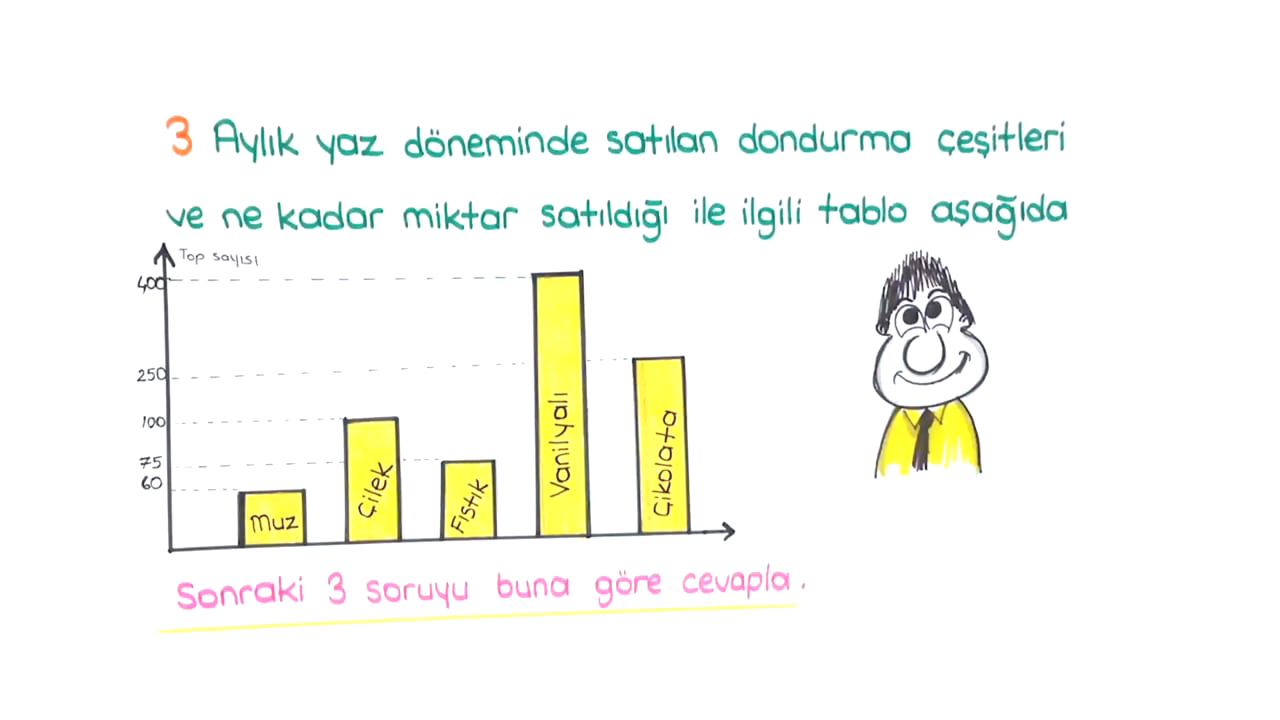 3 Aylık yaz döneminde satılan dondurma çeşitleri
ve ne kadar miktar satıldığı ile ilgili tablo aşağıda
Top sayısı
400
250
100
75
60
Muz
Çilek
Fıstık
Vanilyalı
Çikolata
Sonraki 3 soruyu buna göre cevapla.